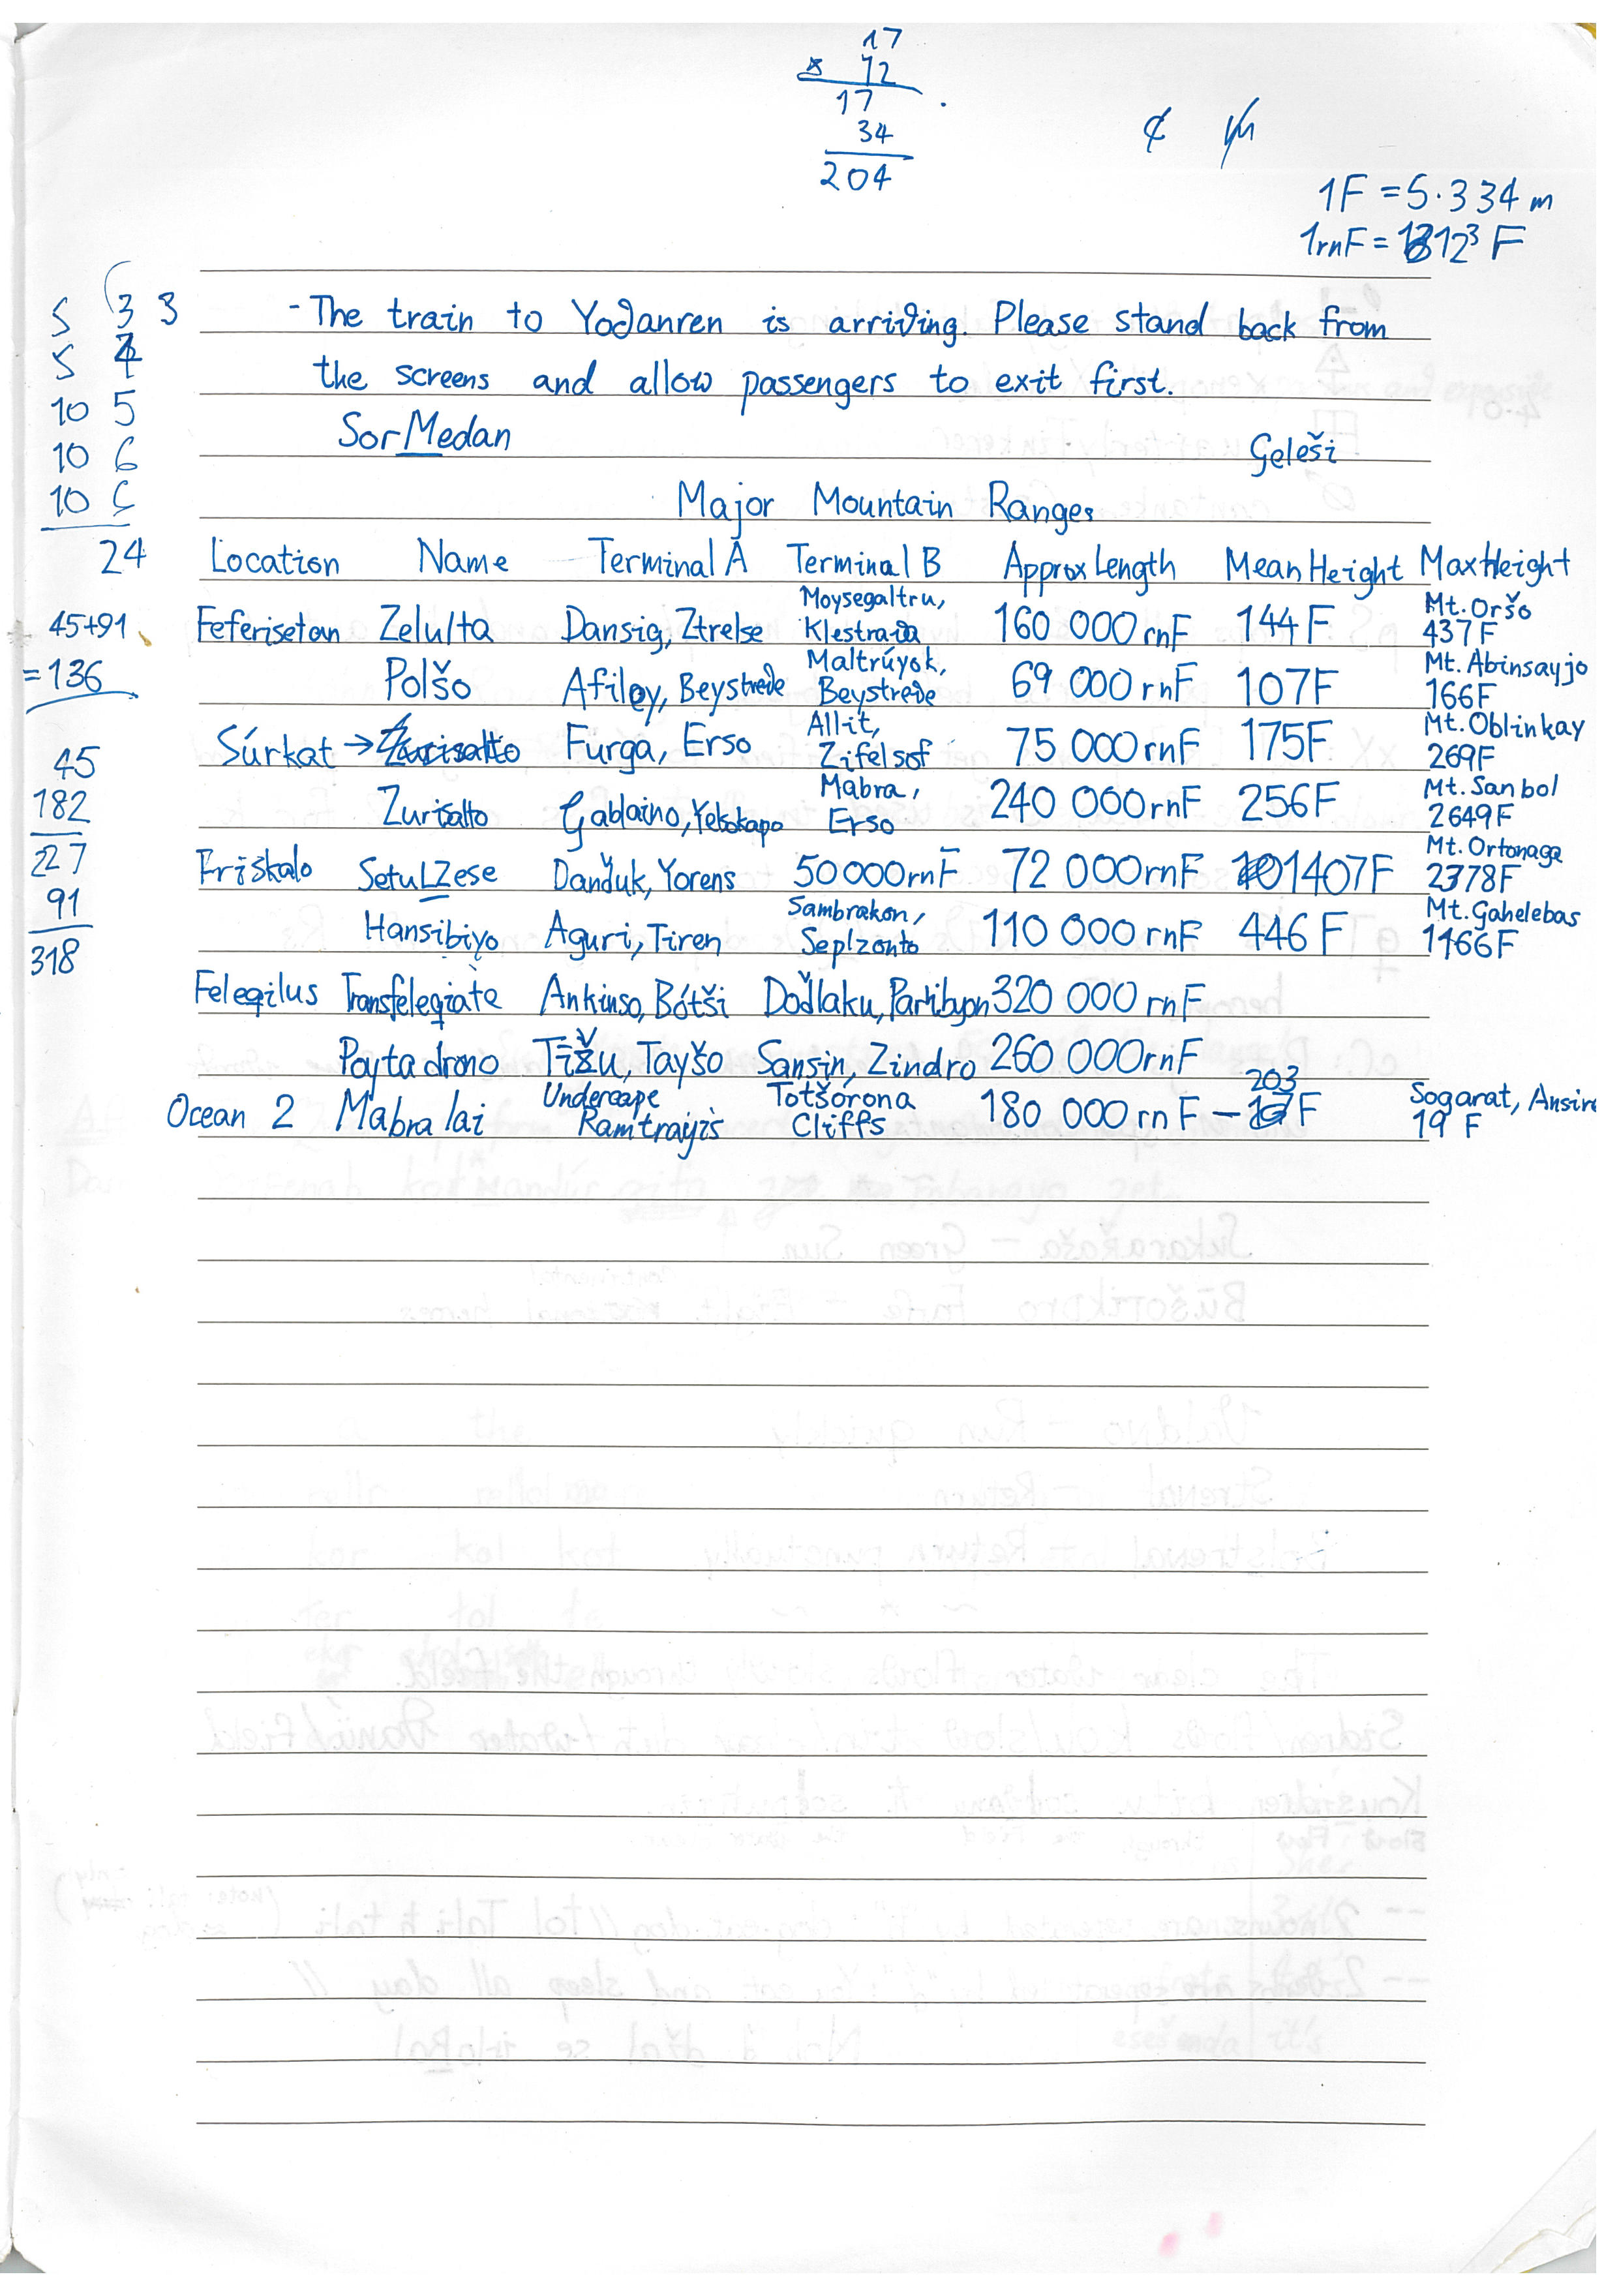 17
x 12
17
34
204
¢
1F = 5.334 m
1rnF = 12³ F
5 3 3
5 4
10 5
10 6
10
24
- The train to Yoðanren is arriving. Please stand back from
the screens and allow passengers to exit first.
SorMedan
Geleši
Major Mountain Ranges
Location Name Terminal A Terminal B Approx Length Mean Height Max Height
45+91
= 136
Feferisetan Zelulta Dansig, Ztrelse Moysegaltru, Klestraða 160 000 rnF 144 F Mt. Oršo 437 F
Polšo Afiley, Beystreðe Maltrúyok, Beystreðe 69 000 rnF 107F Mt. Abinsayjo 166F
Súrkat → Furga, Erso Allit, Zifelsof 75 000 rnF 175F Mt. Oblinkay 269F
Zurisalto Gablaino, Yelskapo Mabra, Erso 240 000 rnF 256F Mt. Sanbol 2649F
45
182
227
91
318
Friskalo SetulZese Danđuk, Yorens 50 000 rnF 72 000 rnF 1407F Mt. Ortonaga 2378F
Hansibiyo Aguri, Tiren Sambrakon, Seplzonto 110 000 rnF 446 F Mt. Gahelebas 1166F
Felegilus Transfelegiate Ankinso, Bótši Dođlaku, Partibyon 320 000 rnF
Poytadrono Tižu, Tayšo Sansin, Zindro 260 000 rnF
Ocean 2 Mabralai Undercape Ramtrayis Totšorona Cliffs 180 000 rnF - 203 F Sogarat, Ansire 19 F